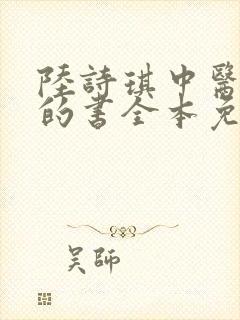 陸詩琪中醫
的書全本免
吴師